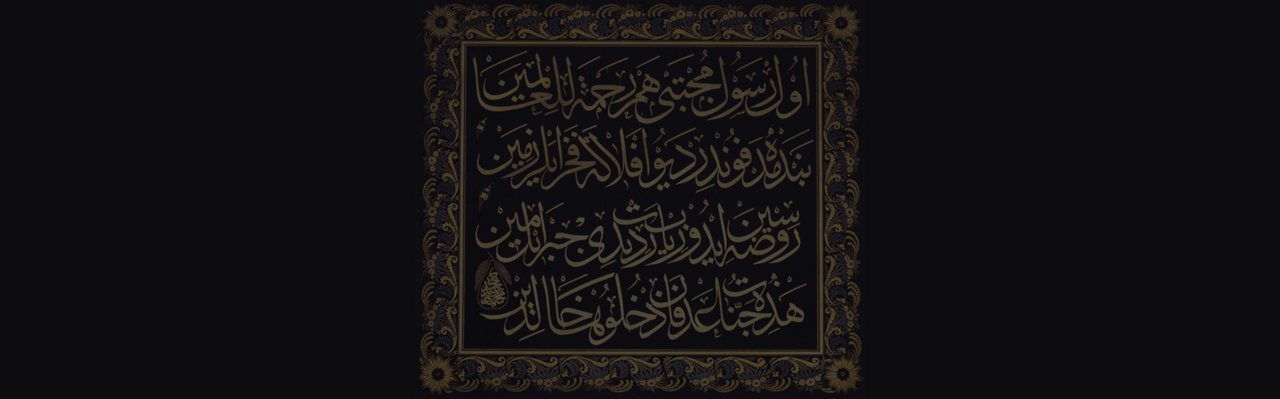 اول رسول مجتبى هم رحمة للعالمين
بنده مدفوندر ديو افلاكه فخر ايلر زمين
روضه سين ايدوب زيارت ديدى جبرئيل امين
هذه جنات عدن فادخلوها خالدين